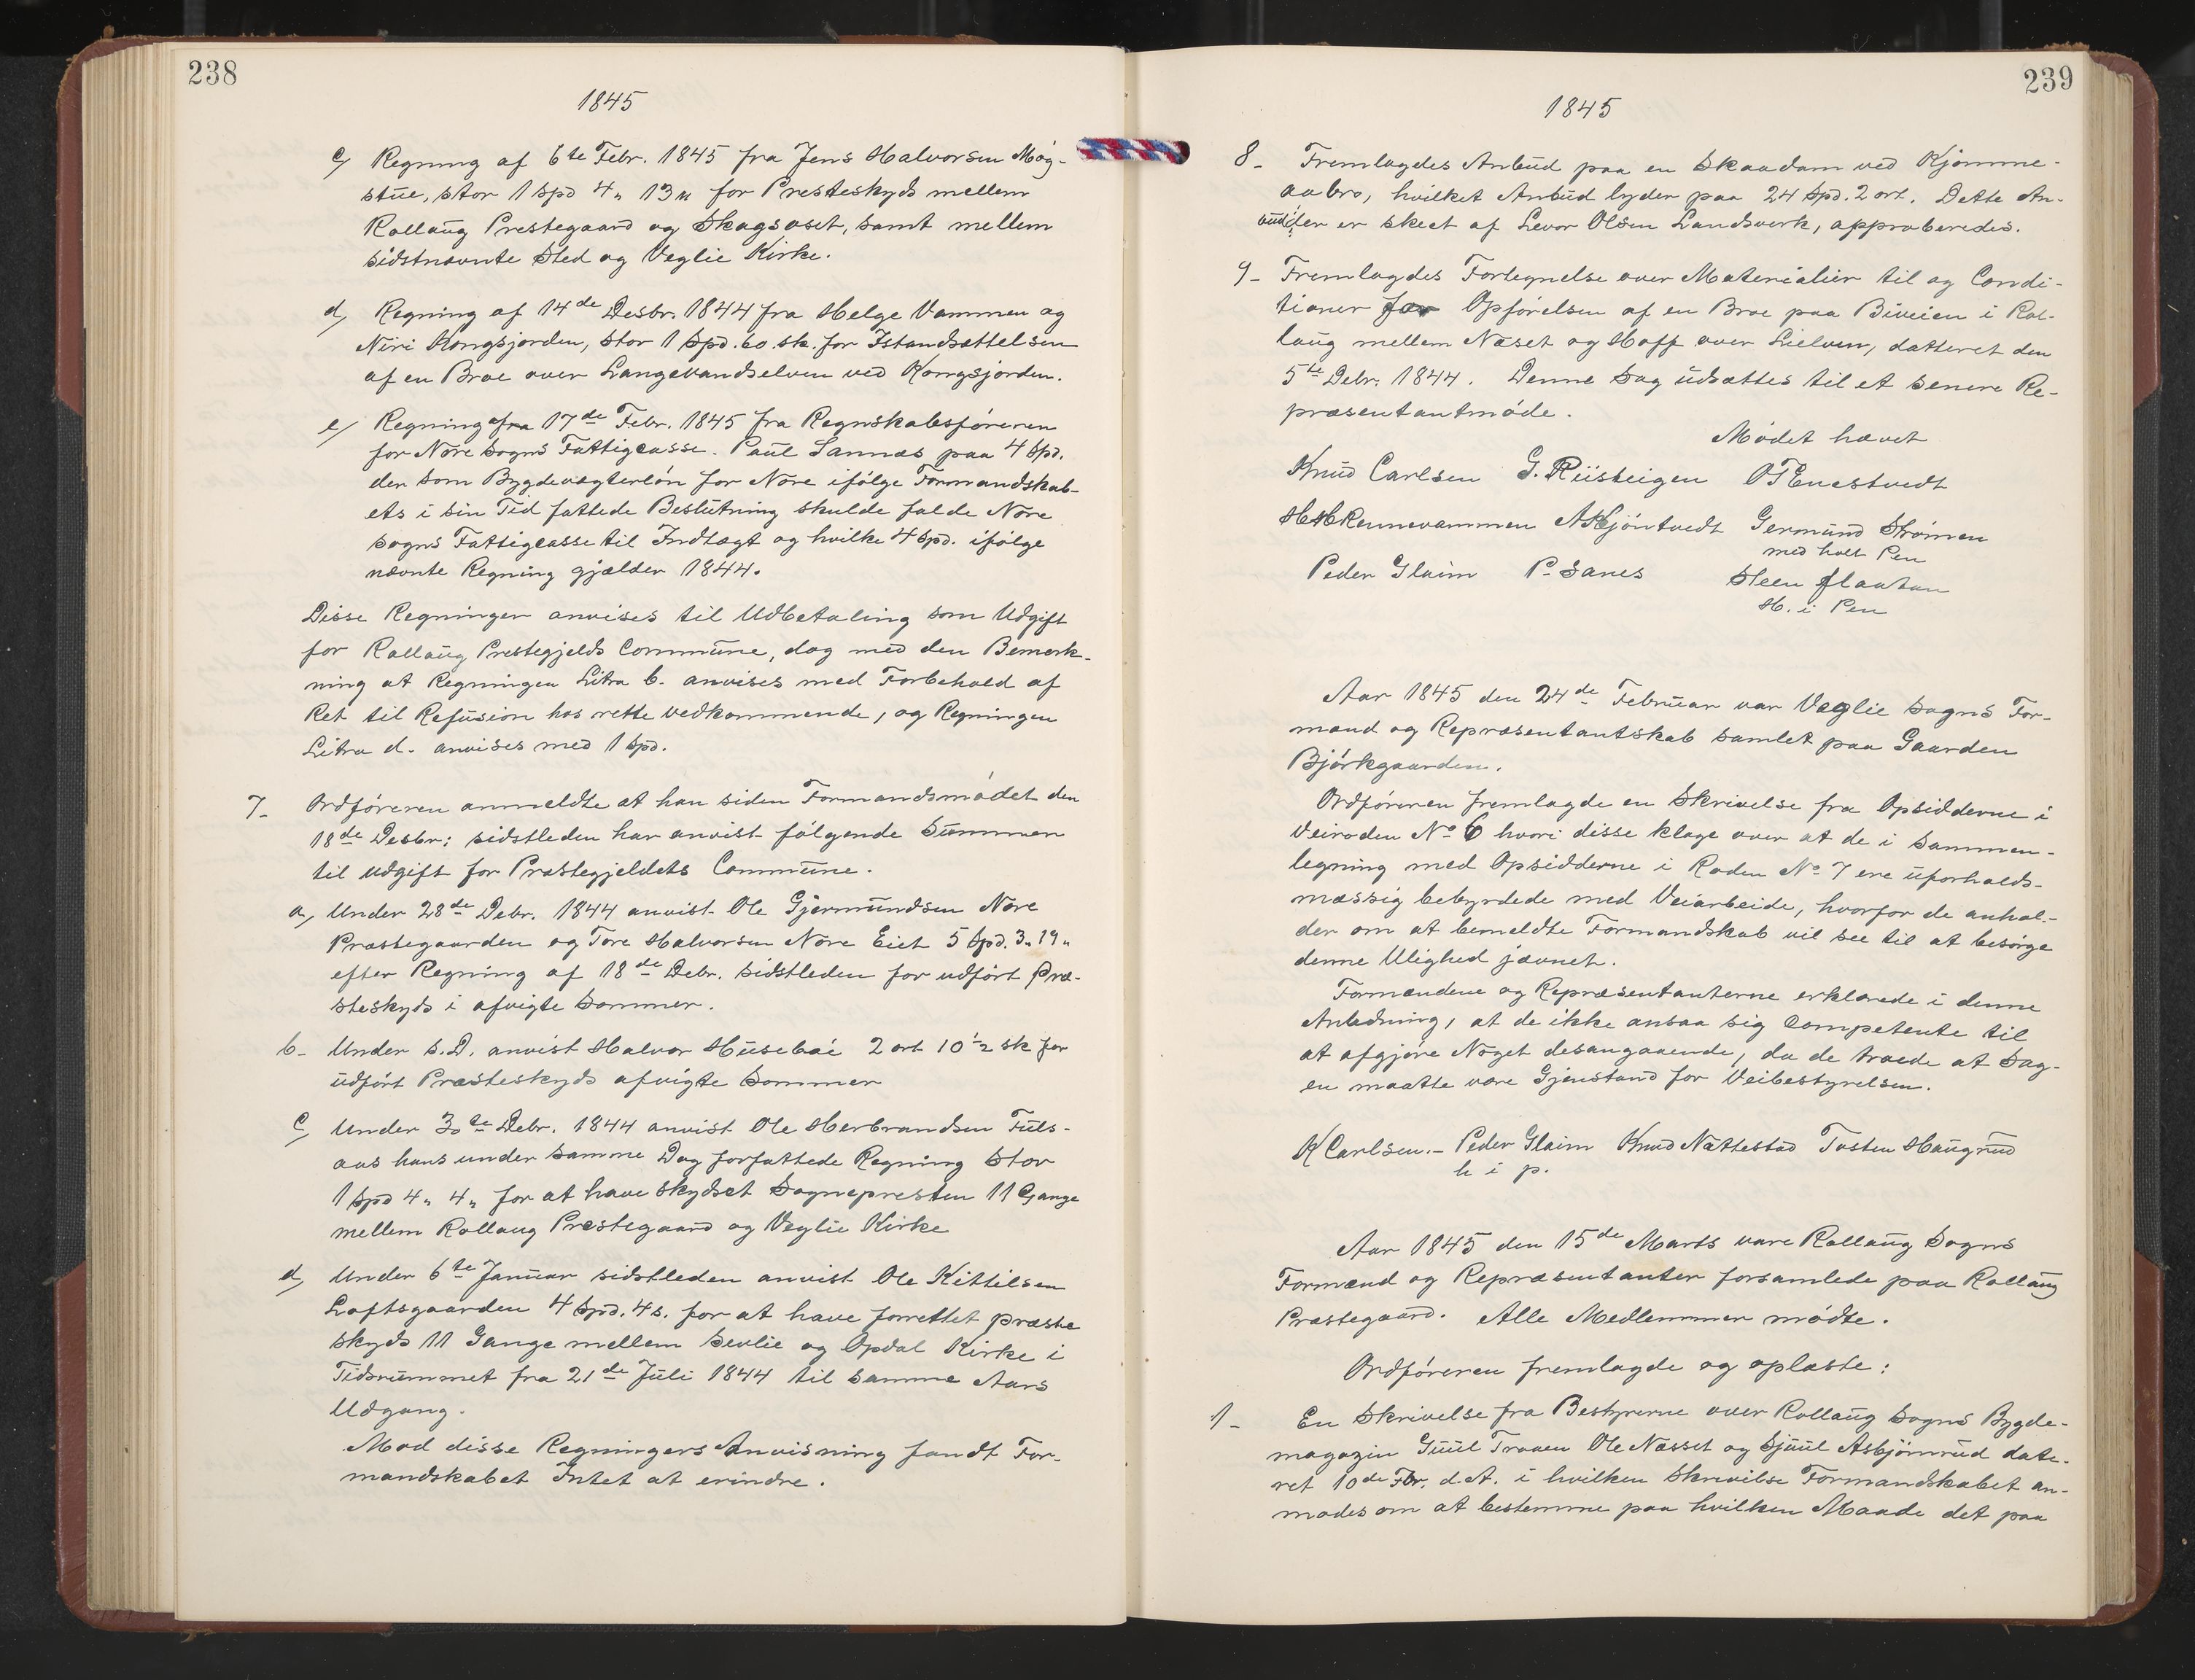 238
1845
c) Regning af 6te Febr. 1845 fra Jens Halvorsen Møg-
stue, stor 1 Spd 4„ 13„ for Presteskyds mellem
Rollaug Prestegaard og Skagsoset, samt mellem
sidstnævnte Sted og Veglie Kirke.
d) Regning af 14de Desbr. 1844 fra Helge Vammen og
Niri Kongsjorden, stor 1 Spd. 60 sk. for Istandsættelsen
af en Broe over Langevandselven ved Kongsjorden.
e) Regning fra 17de Febr. 1845 fra Regnskabsføreren
for Nore Sogns Fattigcasse. Paul Sannæs paa 4 Spd.
der som Bygdevægterløn for Nore ifølge Formandskab-
ets i sin Tid fattede Beslutning skulde falde Nore
Sogns Fattigcasse til Indtægt og hvilke 4 Spd. ifølge
nævnte Regning gjælder 1844.
Disse Regninger anvises til Udbetaling som Udgift
for Rollaug Prestegjelds Commune, dog med den Bemærk-
ning at Regningen Litra b. anvises med Forbehold af
Ret til Refusion hos rette vedkommende, og Regningen
Litra d. anvises med 1 Spd.
7- Ordføreren anmeldte at han siden Formandsmødet den
18de Desbr: sidstleden har anvist følgende Summer
til udgift for Præstegjeldets Commune.
a) Under 28de Debr. 1844 anvist Ole Gjermundsen Nore
Præstegaarden og Tore Halvorsen Nore Eiet 5 Spd. 3„ 19„
efter Regning af 18de Debr. sidstleden for udført Præ-
steskyds i afvigte Sommer.
b- Under s.D. anvist Halvor Husebøe 2 ort 10 1/2 sk for
udført Præsteskyds afvigte Sommer
c) Under 30te Debr. 1844 anvist Ole Herbrandsen Fuls-
aas hans under samme Dag forfattede Regning Stor
1 Spd 4„ 4„ for at have skydset Sognepresten 11 Gange
mellem Rollaug Prestegaard og Veglie Kirke
d) Under 6te Januar sidstleden anvist Ole Kittilsen
Loftsgaarden 4 Spd. 4 s. for at have forrettet præste
skyds 11 Gange mellem Sevlie og Opdal Kirke i
Tidsrummet fra 21de Juli 1844 til samme Aars
Udgang.
Mod disse Regningers Anvisning fandt For-
mandskabet Intet at erindre.
239
1845
8- Fremlagdes Anbud paa en Skaadam ved Kjømme-
aabro, hvilket Anbud lyder paa 24 Spd. 2 ort. Dette An-
bud, der er skeet af Levor Olsen Landsverk, approberedes.
9- Fremlagdes Fortegnelse over Materialier til og Condi-
tioner for Opførelsen af en Broe paa Biveien i Rol-
laug mellem Næset og Hoff over Lielven, datteret den
5te Debr. 1844. Denne Sag udsættes til et senere Re-
præsentantmøde.
Mødet hævet
Knud Carlsen G. Riisteigen OTEnestvedt
HHKennevammen AKjøntvedt Germund Strømen
med holt Pen
Peder Glaim P. Sanes Steen Flaatan
H. i Pen
Aar 1845 den 24de Februar var Veglie Sogns For-
mand og Repræsentantskab samlet paa Gaarden
Bjørkgaarden.
Ordføreren fremlagde en Skrivelse fra Opsidderne i
Veiroden No 6 hvori disse klage over at de i Sammen-
legning med Opsidderne i Roden No 7 ere uforholds-
mæssig bebyrdede med Veiarbeide, hvorfor de anhol-
der om at bemeldte Formandskab vil see til at besørge
denne Ulighed jævnet.
Formændene og Repræsentanterne erklærede i denne
Anledning, at de ikke ansaa sig Competente til
at afgjøre Noget desangaaende, da de troede at Sag-
en maatte være Gjenstand for Veibestyrelsen.
K Carlsen.- Peder Glaim Knud Nættestad Tosten Haugrud
h i p.
Aar 1845 den 15de Marts vare Rollaug Sogns
Formænd og Repræsentanter forsamlede paa Rollaug
Præstegaard. Alle Medlemmer mødte.
Ordføreren fremlagde og oplæste:
1- En Skrivelse fra Bestyrerne over Rollaug Sogns Bygde-
magazin Guul Traaen Ole Næsset og Sjuul Asbjørnrud date-
ret 10de Fbr. d.A. i hvilken Skrivelse Formandskabet an-
modes om at bestemme paa hvilken Maade det paa